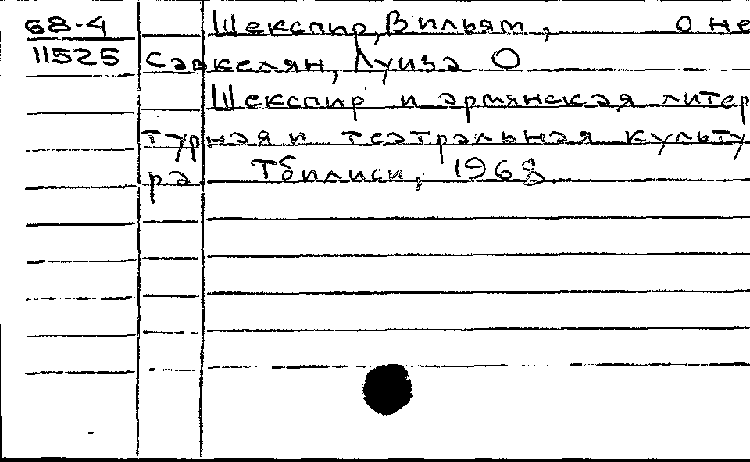 68-4 Шекспир, Вильям, о не
11525 Саркелян, Луиза О
Шекспир и армянская литер
турная и театральная культу
ра Тбилиси, 1968